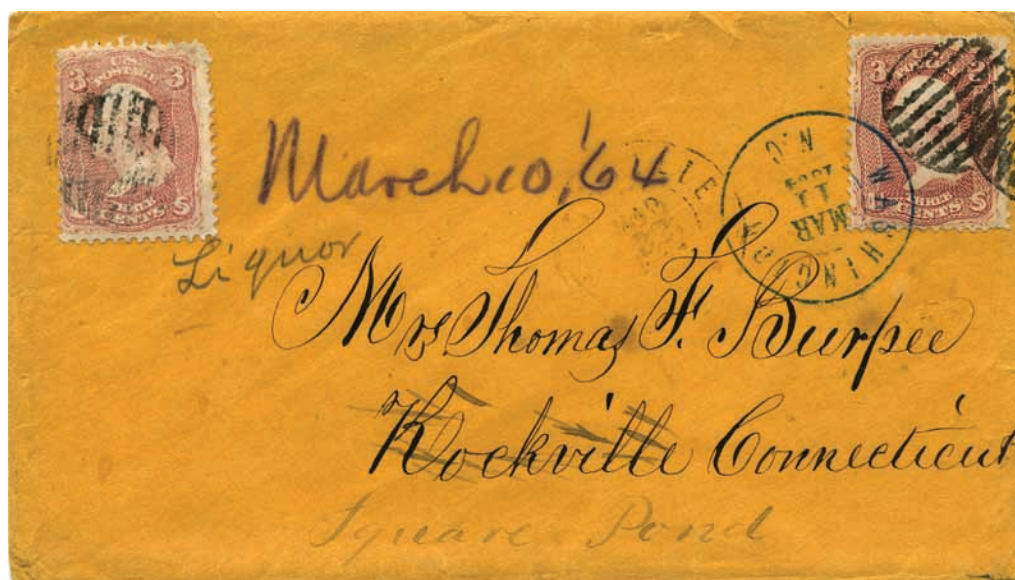 3 3
U.S. POSTAGE
THREE CENTS
3
U.S. POSTAGE
THREE CENTS
March 10, '64
WASHINGTON N.C.
MAR
11
1864
Liquor
Mrs Thomas F. Burpee
Rockville Connecticut
Square Pond